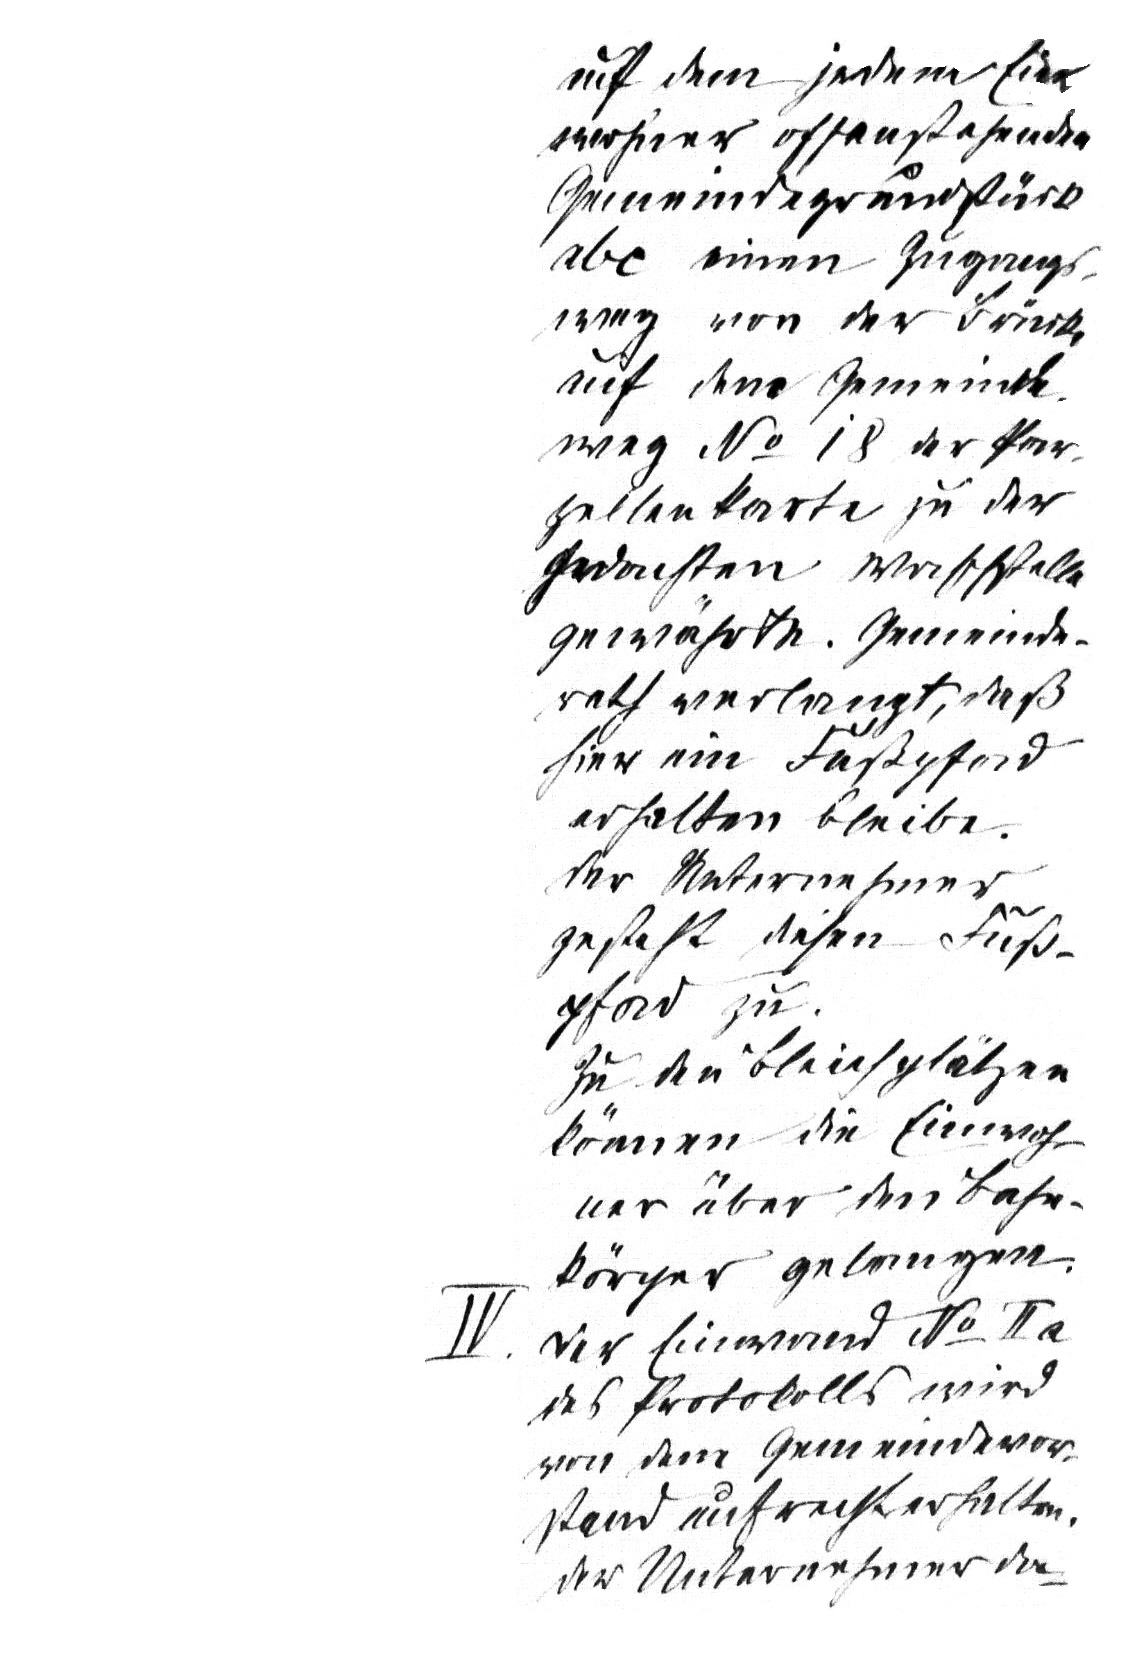 auf dem jedem Ein
wohner offenstehenden
Gemeindegrundstück
abc einen Zugangs-
weg von der Brücke
auf dem Gemeinde-
weg No 18 der Par-
zellenkarte zu der
gedachten Waschstelle
gewährte. Gemeinde-
rath verlangt, daß
hier ein Fußpfad
erhalten bleibe.
Der Unternehmer
gesteht diesen Fuß-
pfad zu.
Zu den Bleichplätzen
können die Einwoh-
ner über den Bahn-
körper gelangen.
IV. Der Einwand No IIa
des Protokolls wird
von dem Gemeindevor-
stand aufrecht erhalten.
Der Unternehmer da-